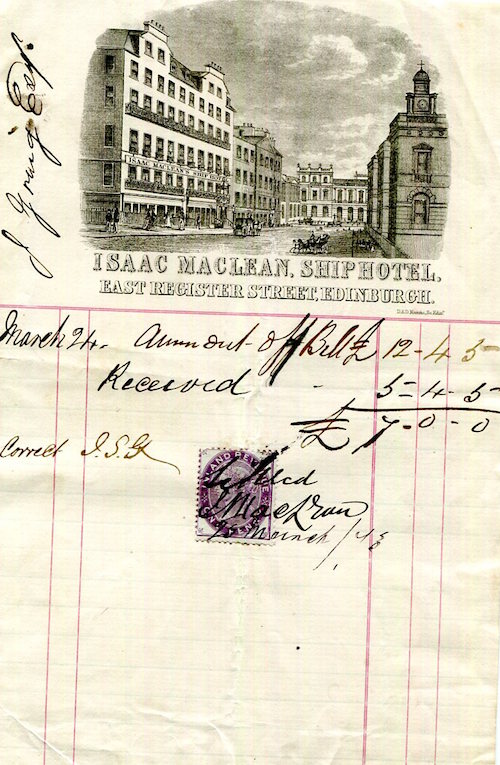 J. Young Esq.
ISAAC MACLEAN'S SHIP HOTEL
ISAAC MACLEAN, SHIP HOTEL,
EAST REGISTER STREET, EDINBURGH.
March 24. Amount of Bill £ 12-4 5
Received - 5-4-5
£ 7-0-0
Correct J.S.G
INLAND REVENUE
Settled
I MacLean
March